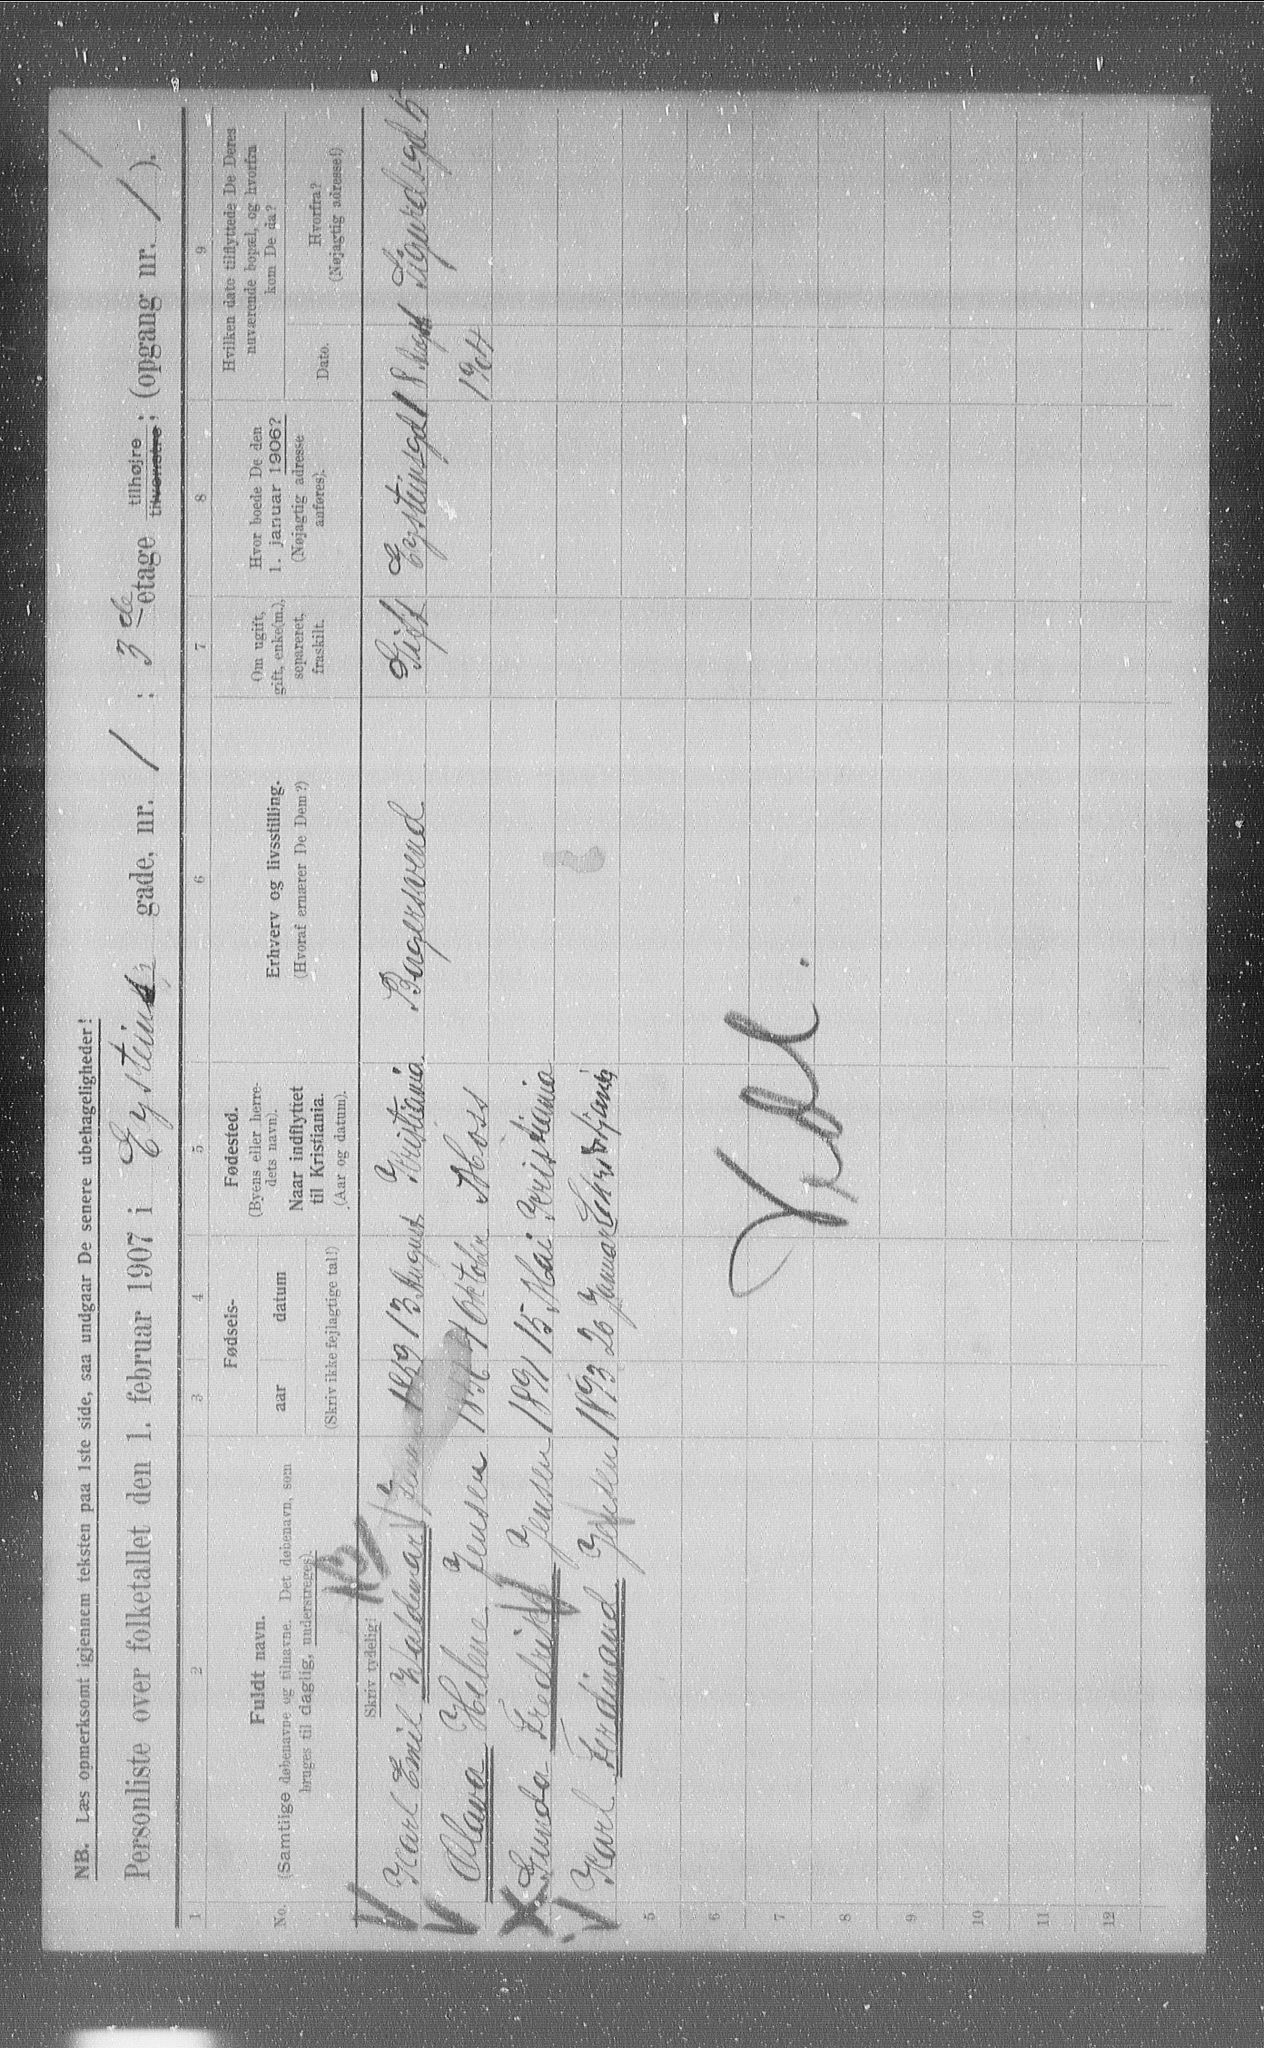 NB. Læs opmerksomt igjennem teksten paa 1ste side, saa undgaar De senere ubehageligheder!
Personliste over folketallet den 1. februar 1907 i Eysteins gade, nr. 1 ; 3de etage tilhøjre tilvenstre; (opgang nr. 1).
1 2 3 4 5 6 7 8 9
No.
Fuldt navn.
(Samtlige døbenavne og tilnavne. Det døbenavn, som
bruges til daglig, understreges).
Skriv tydelig!
Fødsels-
aar datum
(Skriv ikke fejlagtige tal!)
Fødested.
(Byens eller herre-
dets navn).
Naar indflyttet
til Kristiania.
(Aar og datum).
Erhverv og livsstilling.
(Hvoraf ernærer De Dem?)
Om ugift,
gift, enke(m.),
separeret,
fraskilt.
Hvor boede De den
1. januar 1906?
(Nøjagtig adresse
anføres).
Hvilken dato tilflyttede De Deres
nuværende bopæl, og hvorfra
kom De da?
Dato.
Hvorfra?
(Nøjagtig adresse!)
Karl Emil Waldemar Jensen 1869 13 August Kristiania Bagersvend Gift Eysteinsgd 1 8 Sigurdsgd
Olava Helene Jensen 4 Oktober Moss 1904
Fredrikke Jensen 1891 15 Mai Kristiania
Karl Ferdinand Jensen 1893 26 Januar
5
6
7
8
9
10
11
12